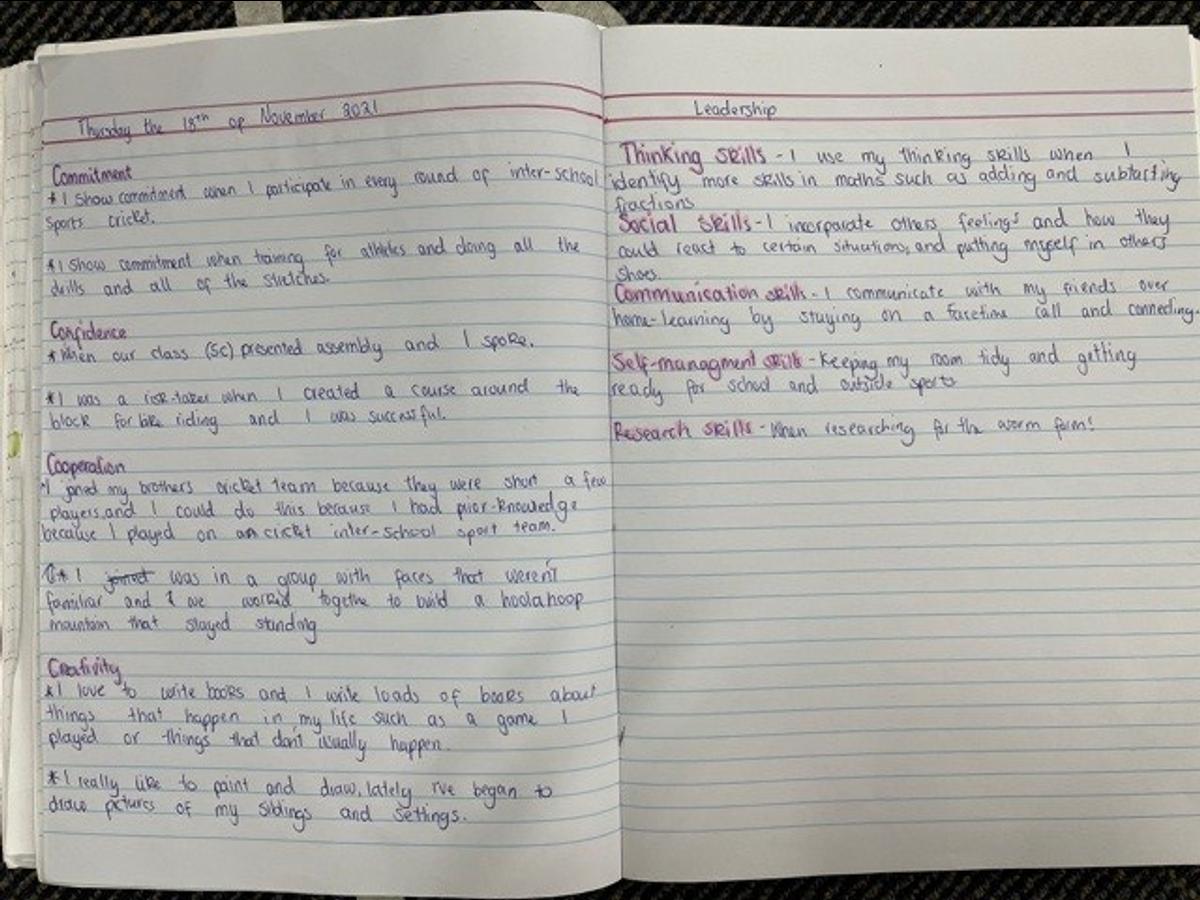 Thursday the 18th of November 2021
Commitment
* I show commitment when I participate in every round of inter-school
sports cricket.
* I show commitment when training for athletics and doing all the
drills and all of the stretches.
Confidence
* When our class (5c) presented assembly and I spoke.
* I was a risk-taker when I created a course around the
block for bike riding and I was successful.
Cooperation
* I joined my brothers cricket team because they were short a few
players, and I could do this because I had prior-knowledge
because I played on an cricket inter-school sport team.
* I joined was in a group with faces that weren't
familiar and we worked togethe to build a hoolahoop
mountain that stayed standing
Creativity
* I love to write books and I write loads of books about
things that happen in my life such as a game I
played or things that don't usually happen.
* I really like to paint and draw, lately I've began to
draw pictures of my siblings and settings.
Leadership
Thinking skills - I use my thinking skills when I
identify more skills in maths such as adding and subtarting
fractions
Social skills - I incorparate others feelings and how they
could react to certain situations, and putting myself in others
shoes.
Communication skills - I communicate with my friends over
home-learning by staying on a facetime call and connecting.
Self-managment skills - Keeping my room tidy and getting
ready for school and outside sports
Research skills - When researching for the worm farm!